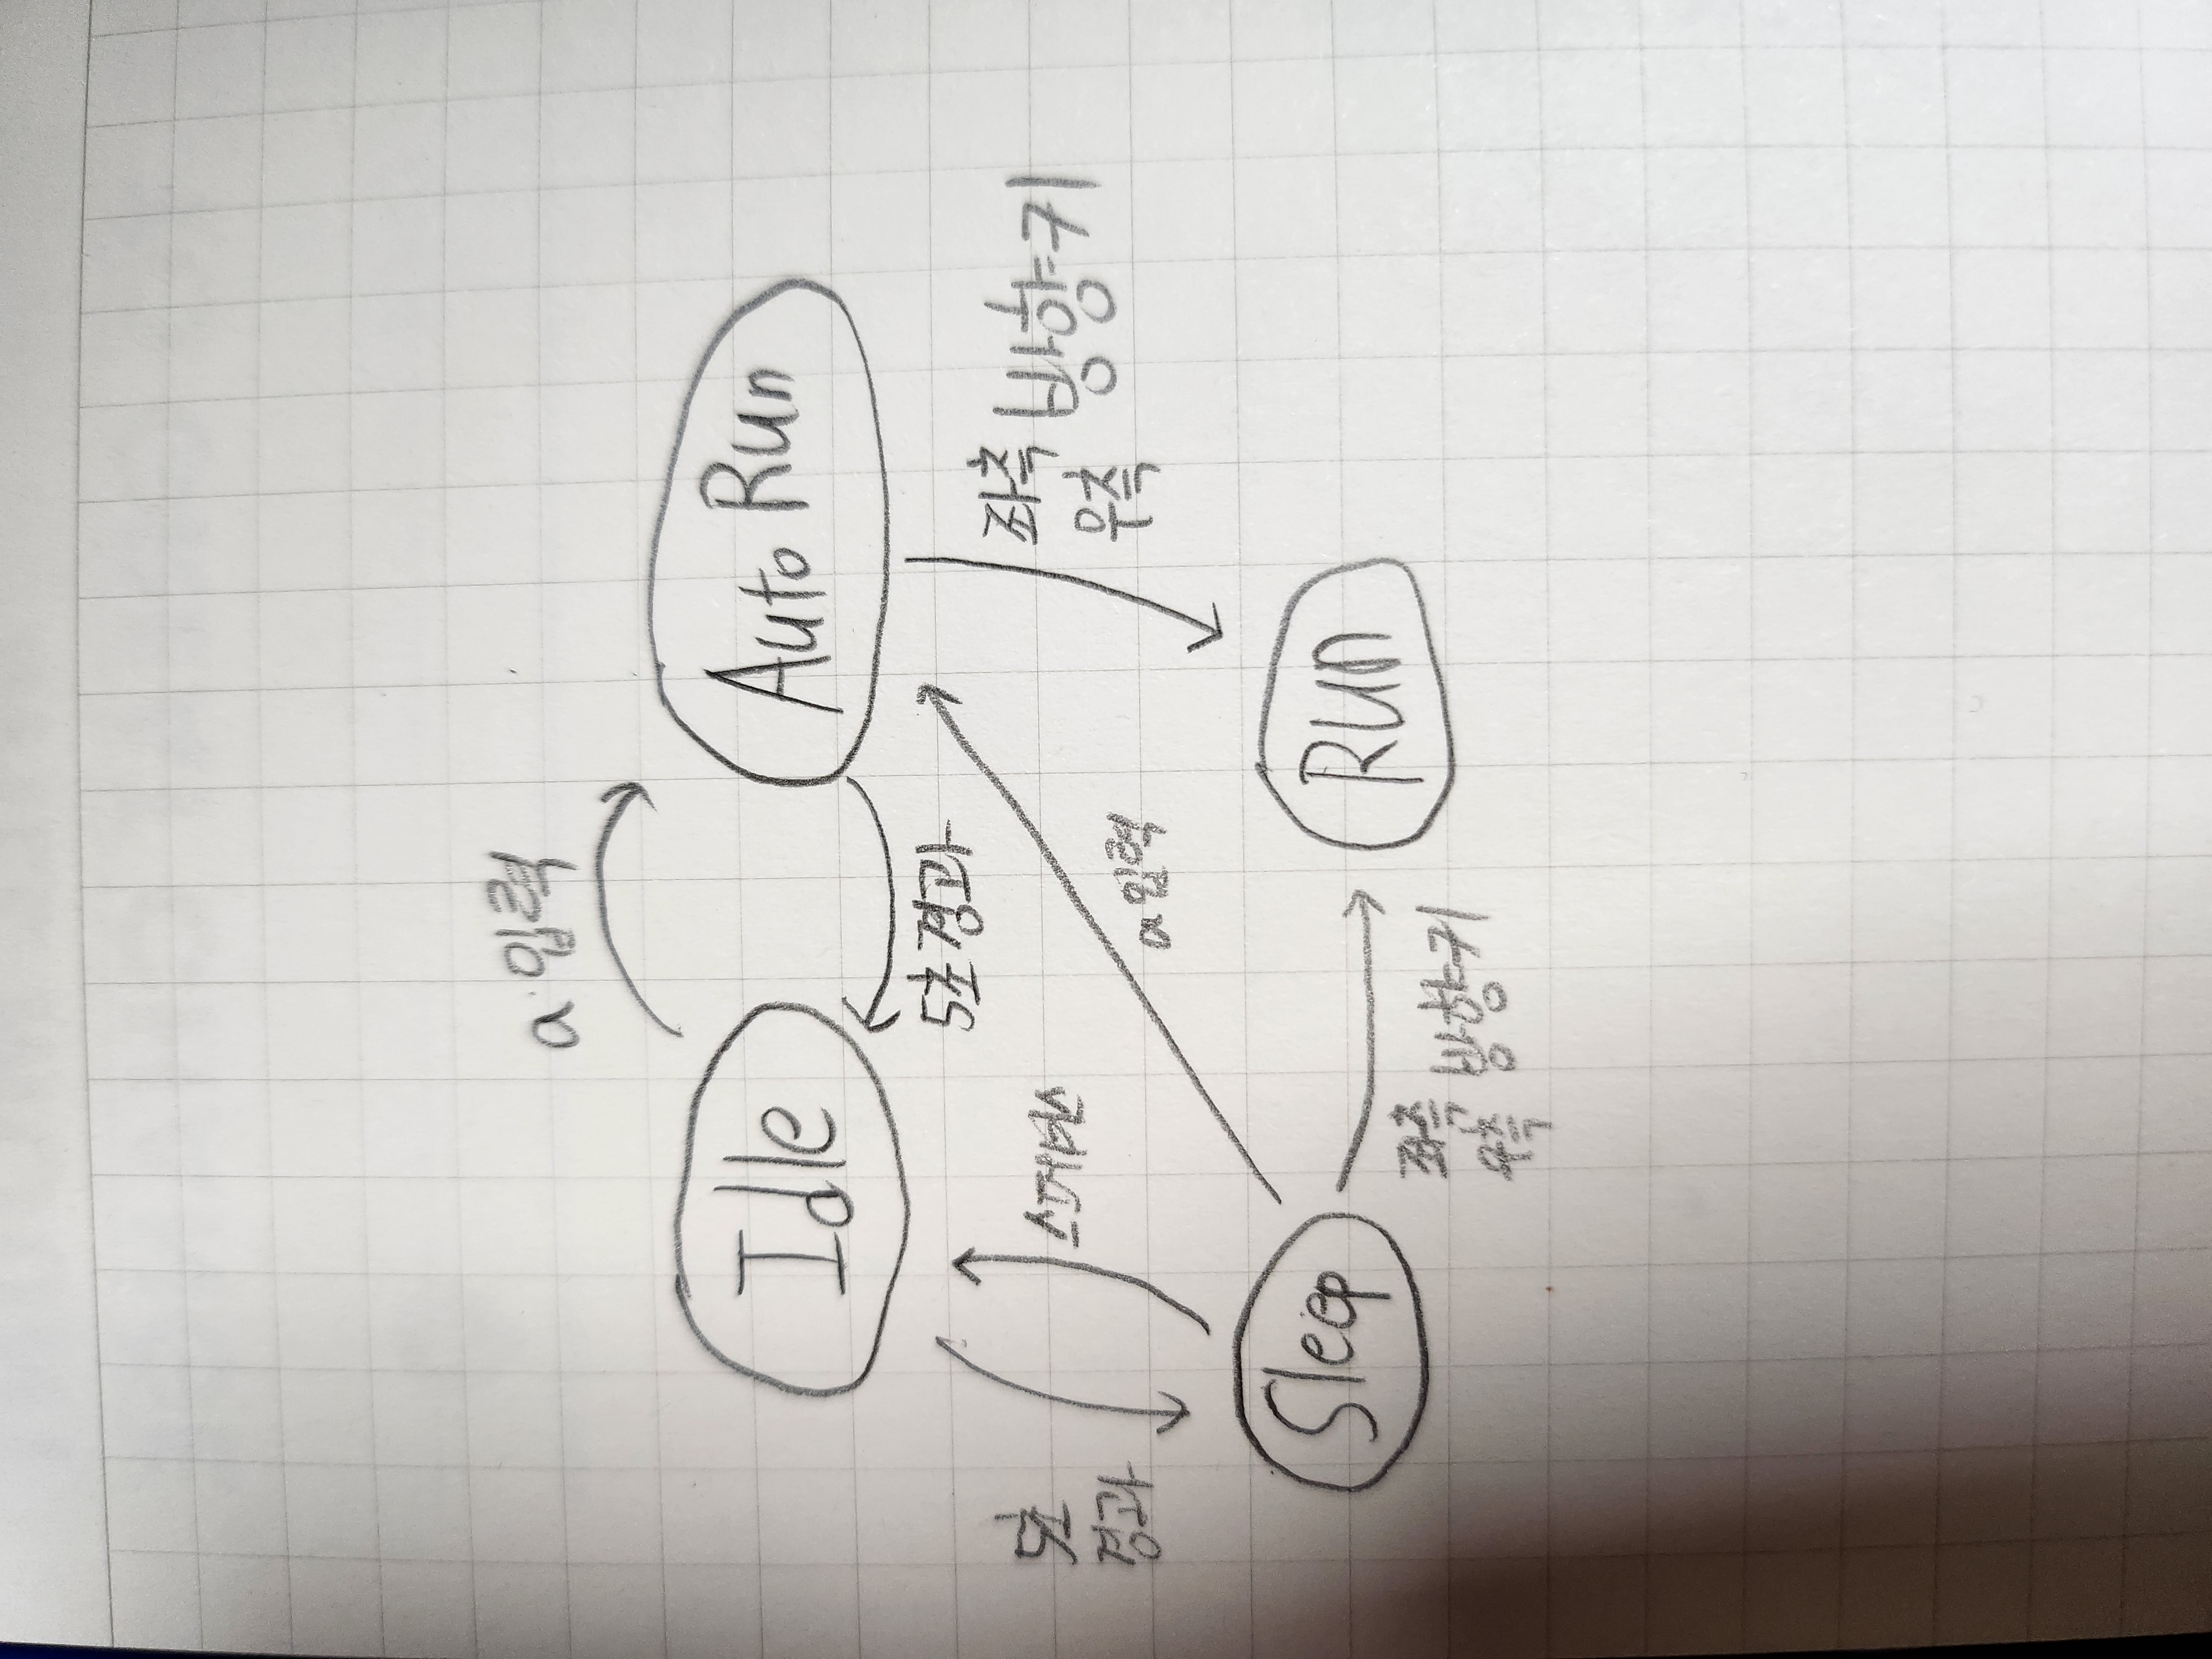 a 입력
Idle
Auto Run
5초 경과
5초
경과
스페이스
좌측
우측
방향키
a 입력
Sleep
Run
좌측
우측
방향키